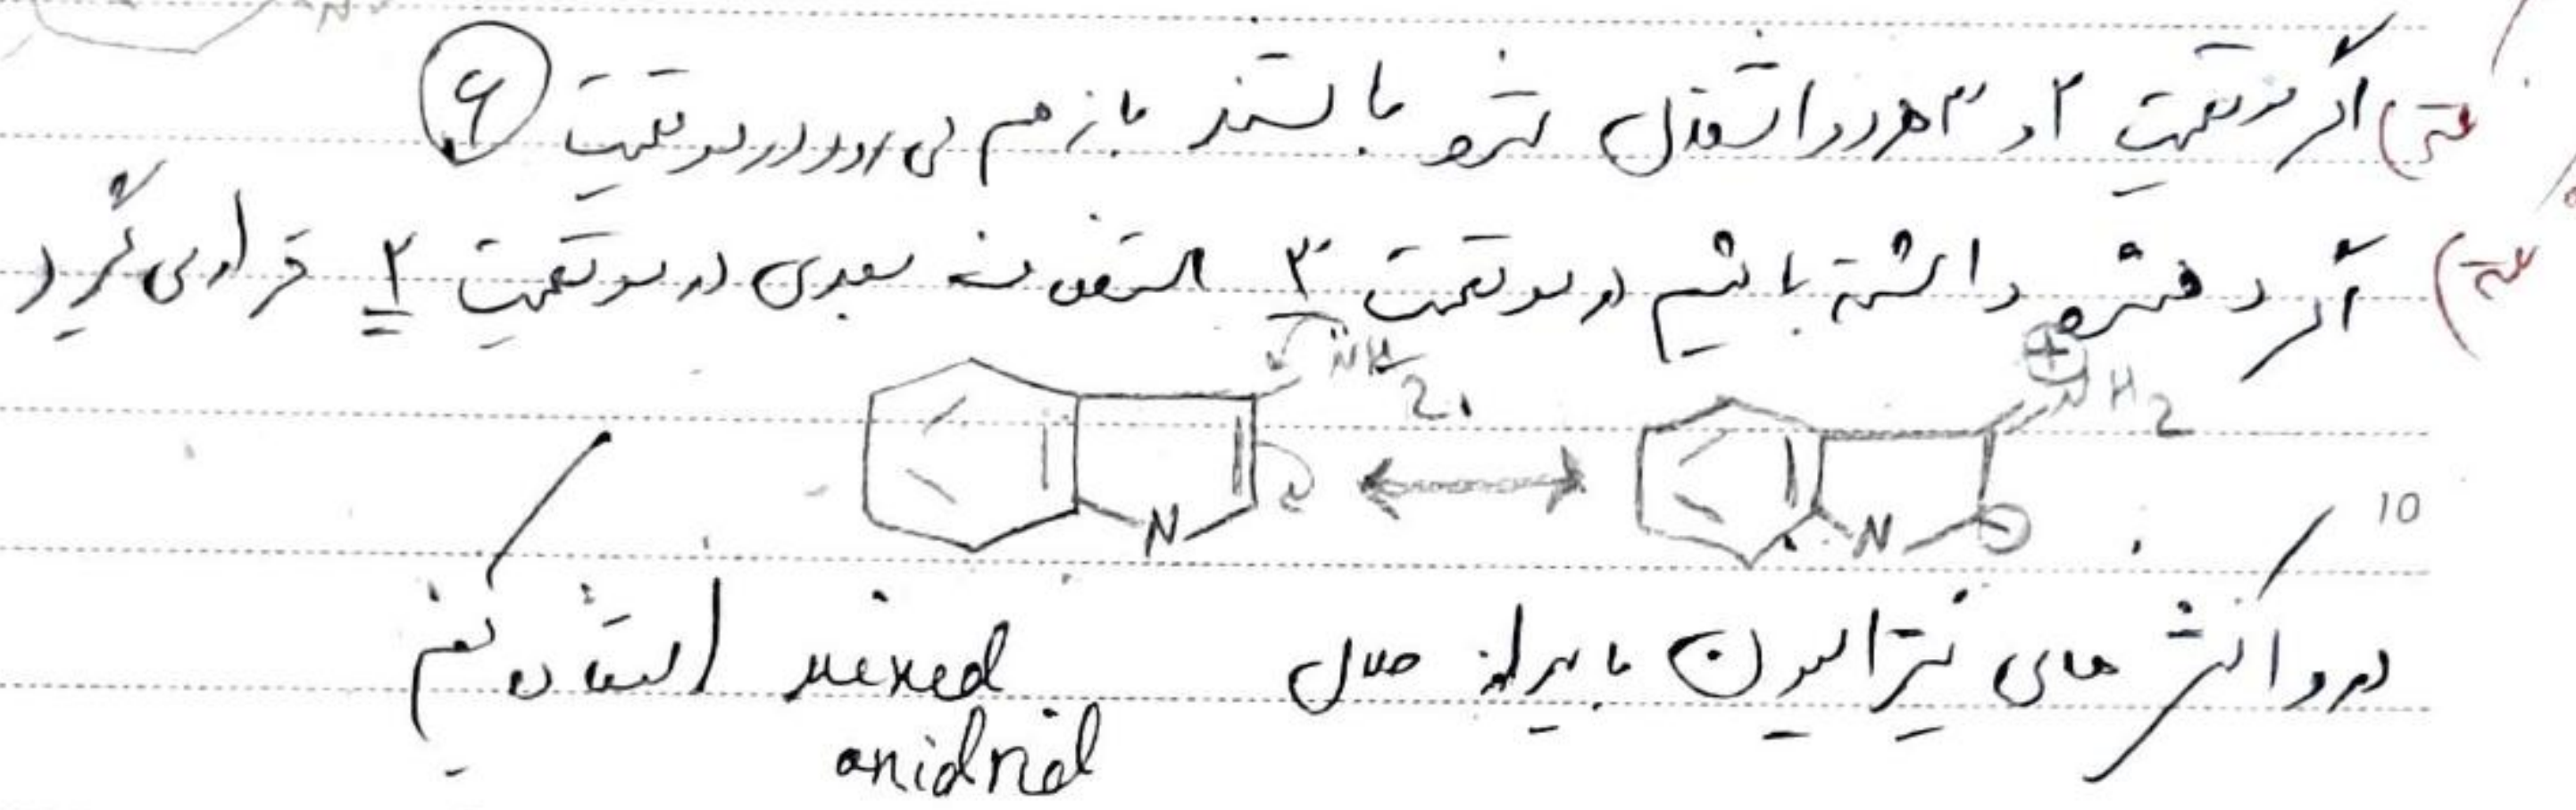 نکته) اگر موقعیت ۲ و ۳ هر دو اشغال شده باشند باز هم می رود در موقعیت ۶
نکته) اگر دهنده داشته باشیم در موقعیت ۳ استخلاف بعدی در موقعیت ۲ قرار می گیرد
NH2
N
⊕
NH2
N
⊖
10
در واکنش های نیتراسیون باید از حلال mixed استفاده کنیم
anidrid